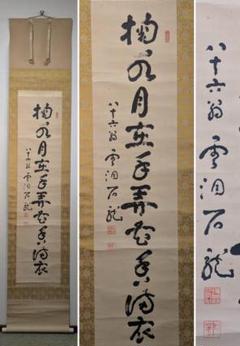 掬水月在手弄花香満衣
八十六翁 石龍
掬水月在手弄花香満衣
八十六翁 石龍
八十六翁 石龍